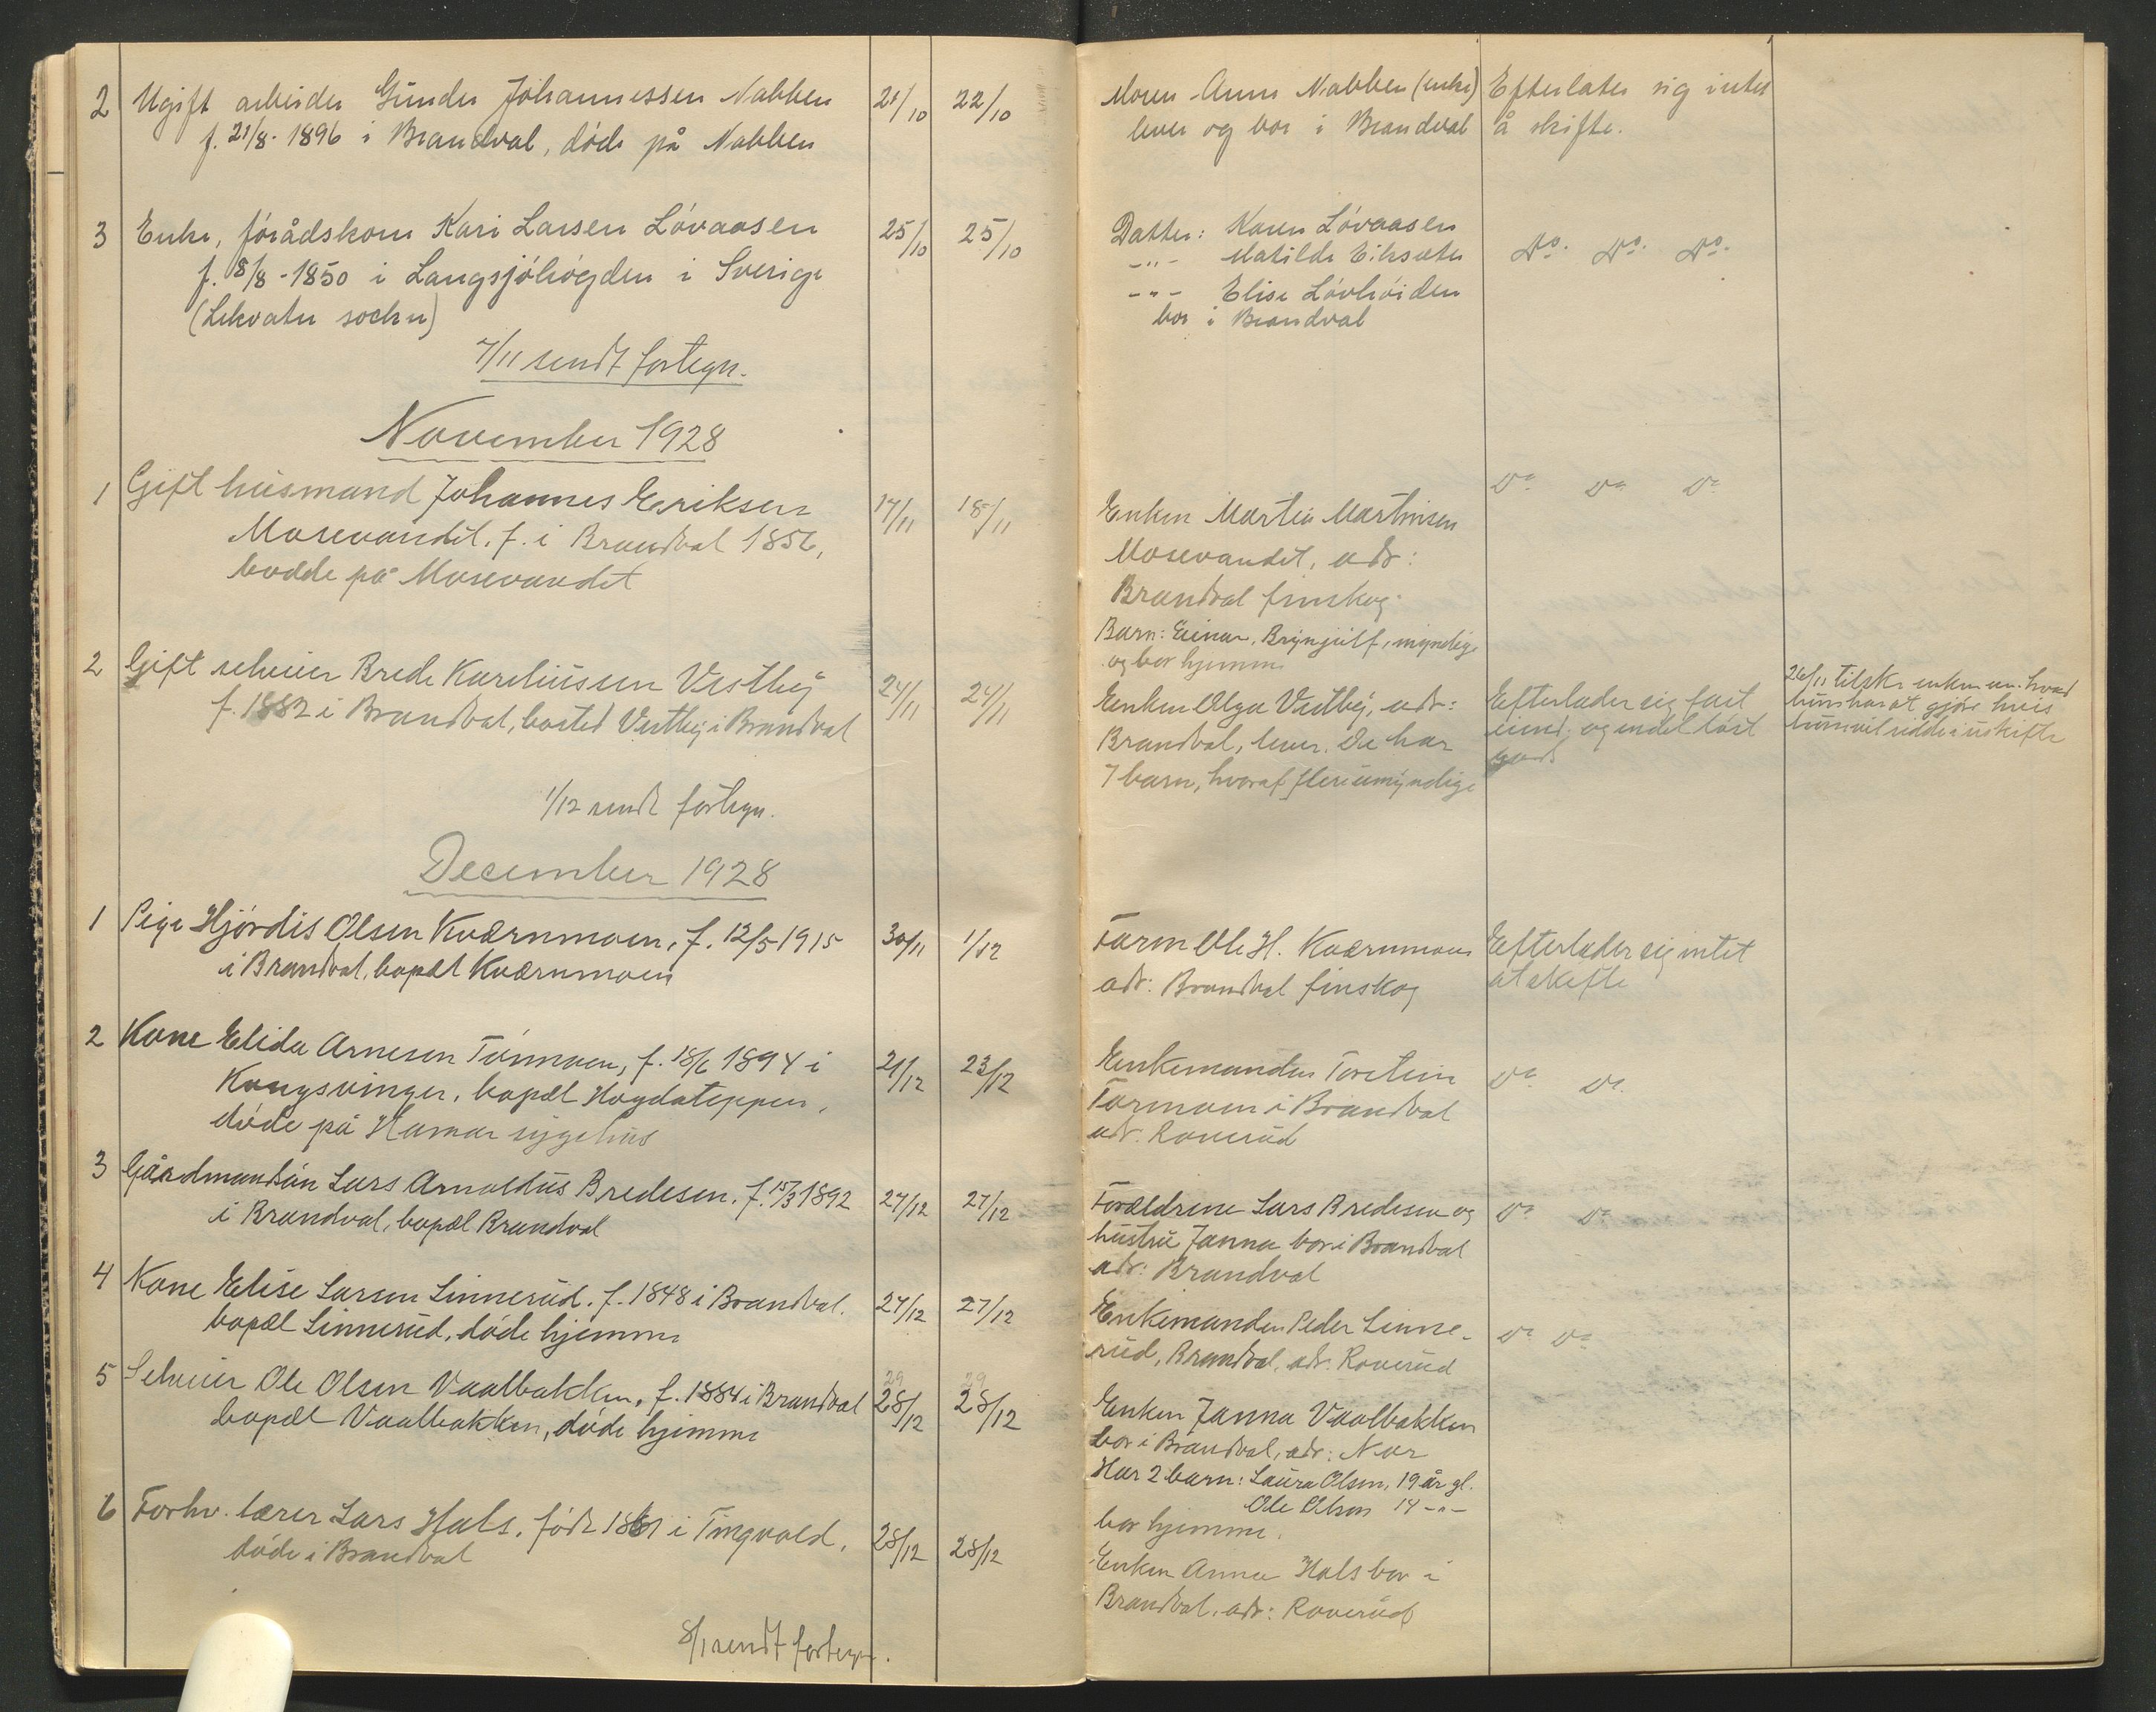 2 Ugift arbeider Gunder Johannessen Nabben 21/10 22/10
f. 21/8-1896 i Brandval, døde på Nabben
Moren Anne Nabben (enke)
lever og bor i Brandval
Efterlater sig intet
å skifte.
3 Enke, førådskone Kari Larsen Løvaasen 25/10 25/10
f. 8/8-1850 i Langsjøhøgden i Sverige
(Lekvatn sockn)
Datter: Karen Løvaasen
-"- Matilde Eiksæter
-"- Elise Løvhøiden
bor i Brandval
Do. Do. Do.
7/11 sendt fortegn.
November 1928
1 Gift husmand Johannes Eriksen 17/11 18/11
Mosevandet. f. i Brandval 1856,
bodde på Mosevandet
Enken Martea Martinsen
Mosevandet, adr:
Brandval finskog.
Barn: Einar, Brynjulf, myndige
og bor hjemme
Do Do Do
2 Gift selveier Brede Kareliussen Vestby 24/11 24/11
f. 1882 i Brandval, bosted Vestby i Brandval
Enken Olga Vestby, adr:
Brandval, lever. De har
7 barn, hvoraf flere umyndige
Efterlader sig fast
eiend. og endel løst
gods
26/11 tilskr. enken om hvad
hun har at gjøre hvis
hun vil sidde i uskifte
1/12 sendt fortegn.
December 1928
1 Pige Hjørdis Olsen Kværnmoen, f. 12/5 1915 30/11 1/12
i Brandval, bopæl Kværnmoen
Faren Ole H. Kværnmoen
adr: Brandval finskog
Efterlader sig intet
at skifte
2 Kone Elida Arnesen Tørmoen, f. 18/6 1894 i 21/12 23/12
Kongsvinger, bopæl Høgdateppen,
døde på Hamar sygehus
Enkemanden Torstein
Tørmoen i Brandval
adr: Roverud
Do Do
3 Gårdmandsøn Lars Arnoldus Bredesen. f. 15/3 1892 27/12 27/12
i Brandval, bopæl Brandval
Forældrene Lars Bredesen og
hustru Janna bor i Brandval
adr: Brandval
Do Do
4 Kone Elise Larsen Linnerud. f. 1848 i Brandval. 27/12 27/12
bopæl Linnerud, døde hjemme
Enkemanden Peder Linne-
rud, Brandval, adr. Roverud
Do Do
5 Selveier Ole Olsen Vaalbakken, f. 1884 i Brandval 28/12 28/12
29 29
bopæl Vaalbakken, døde hjemme
Enken Janna Vaalbakken
bor i Brandval, adr: Nor
Har 2 barn: Laura Olsen, 19 år gl.
Ole Olsen 14 -"-
bor hjemme.
6 Forhv. lærer Lars Hals. født 1861 i Tingvold, 28/12 28/12
døde i Brandval
Enken Anna Hals bor i
Brandval, adr: Roverud
8/1 sendt fortegn.